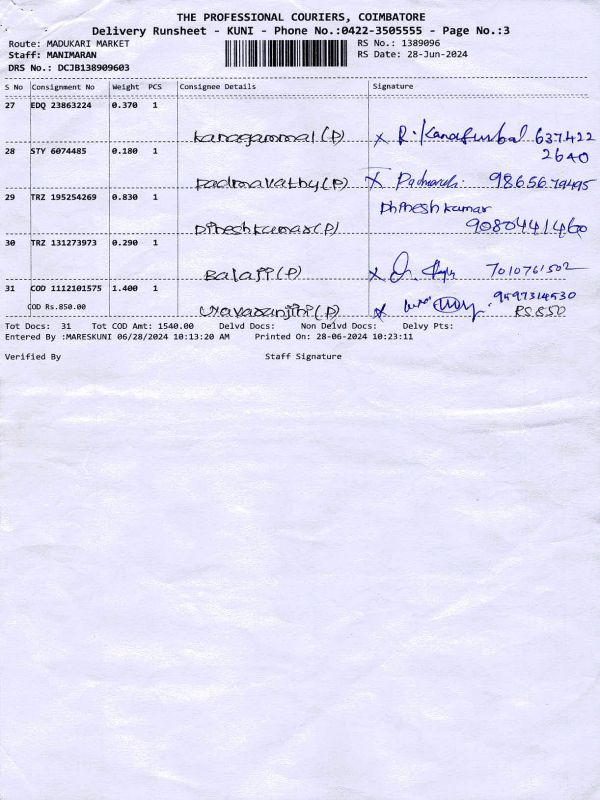 THE PROFESSIONAL COURIERS, COIMBATORE
Delivery Runsheet - KUNI - Phone No.:0422-3505555 - Page No.:3
Route: MADUKARI MARKET RS No.: 1389096
Staff: MANIMARAN RS Date: 28-Jun-2024
DRS No.: DCJB138909603
S No Consignment No Weight PCS Consignee Details Signature
27 EDQ 23863224 0.370 1
Kanagammal (P) x R. 637422
2640
28 STY 6074485 0.180 1
Padmavathy (P) x 9865679495
29 TRZ 195254269 0.830 1
Dhinesh kumar
Dineshkumar (P) 9080441460
30 TRZ 131273973 0.290 1
Balaji (P) x 7010761502
31 COD 1112101575 1.400 1
COD Rs.850.00
(P) x 9597314530
RS 850
Tot Docs: 31 Tot COD Amt: 1540.00 Delvd Docs: Non Delvd Docs: Delvy Pts:
Entered By :MARESKUNI 06/28/2024 10:13:20 AM Printed On: 28-06-2024 10:23:11
Verified By Staff Signature